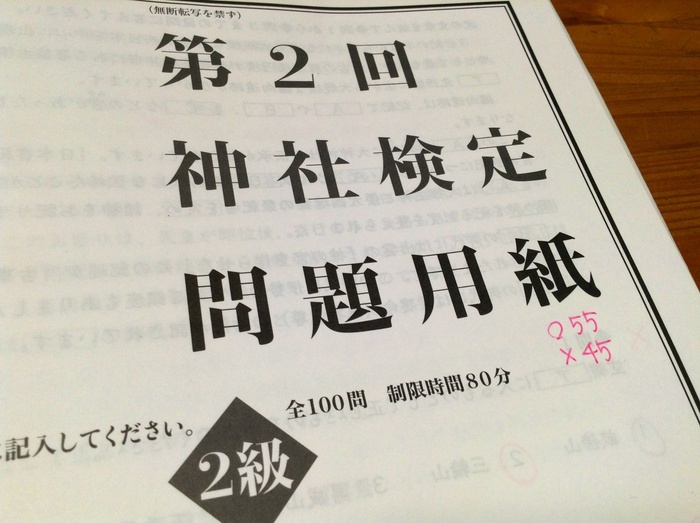 (無断転写を禁ず)
第2回
神社検定
問題用紙
○55
×45
全100問 制限時間80分
に記入してください。
2級